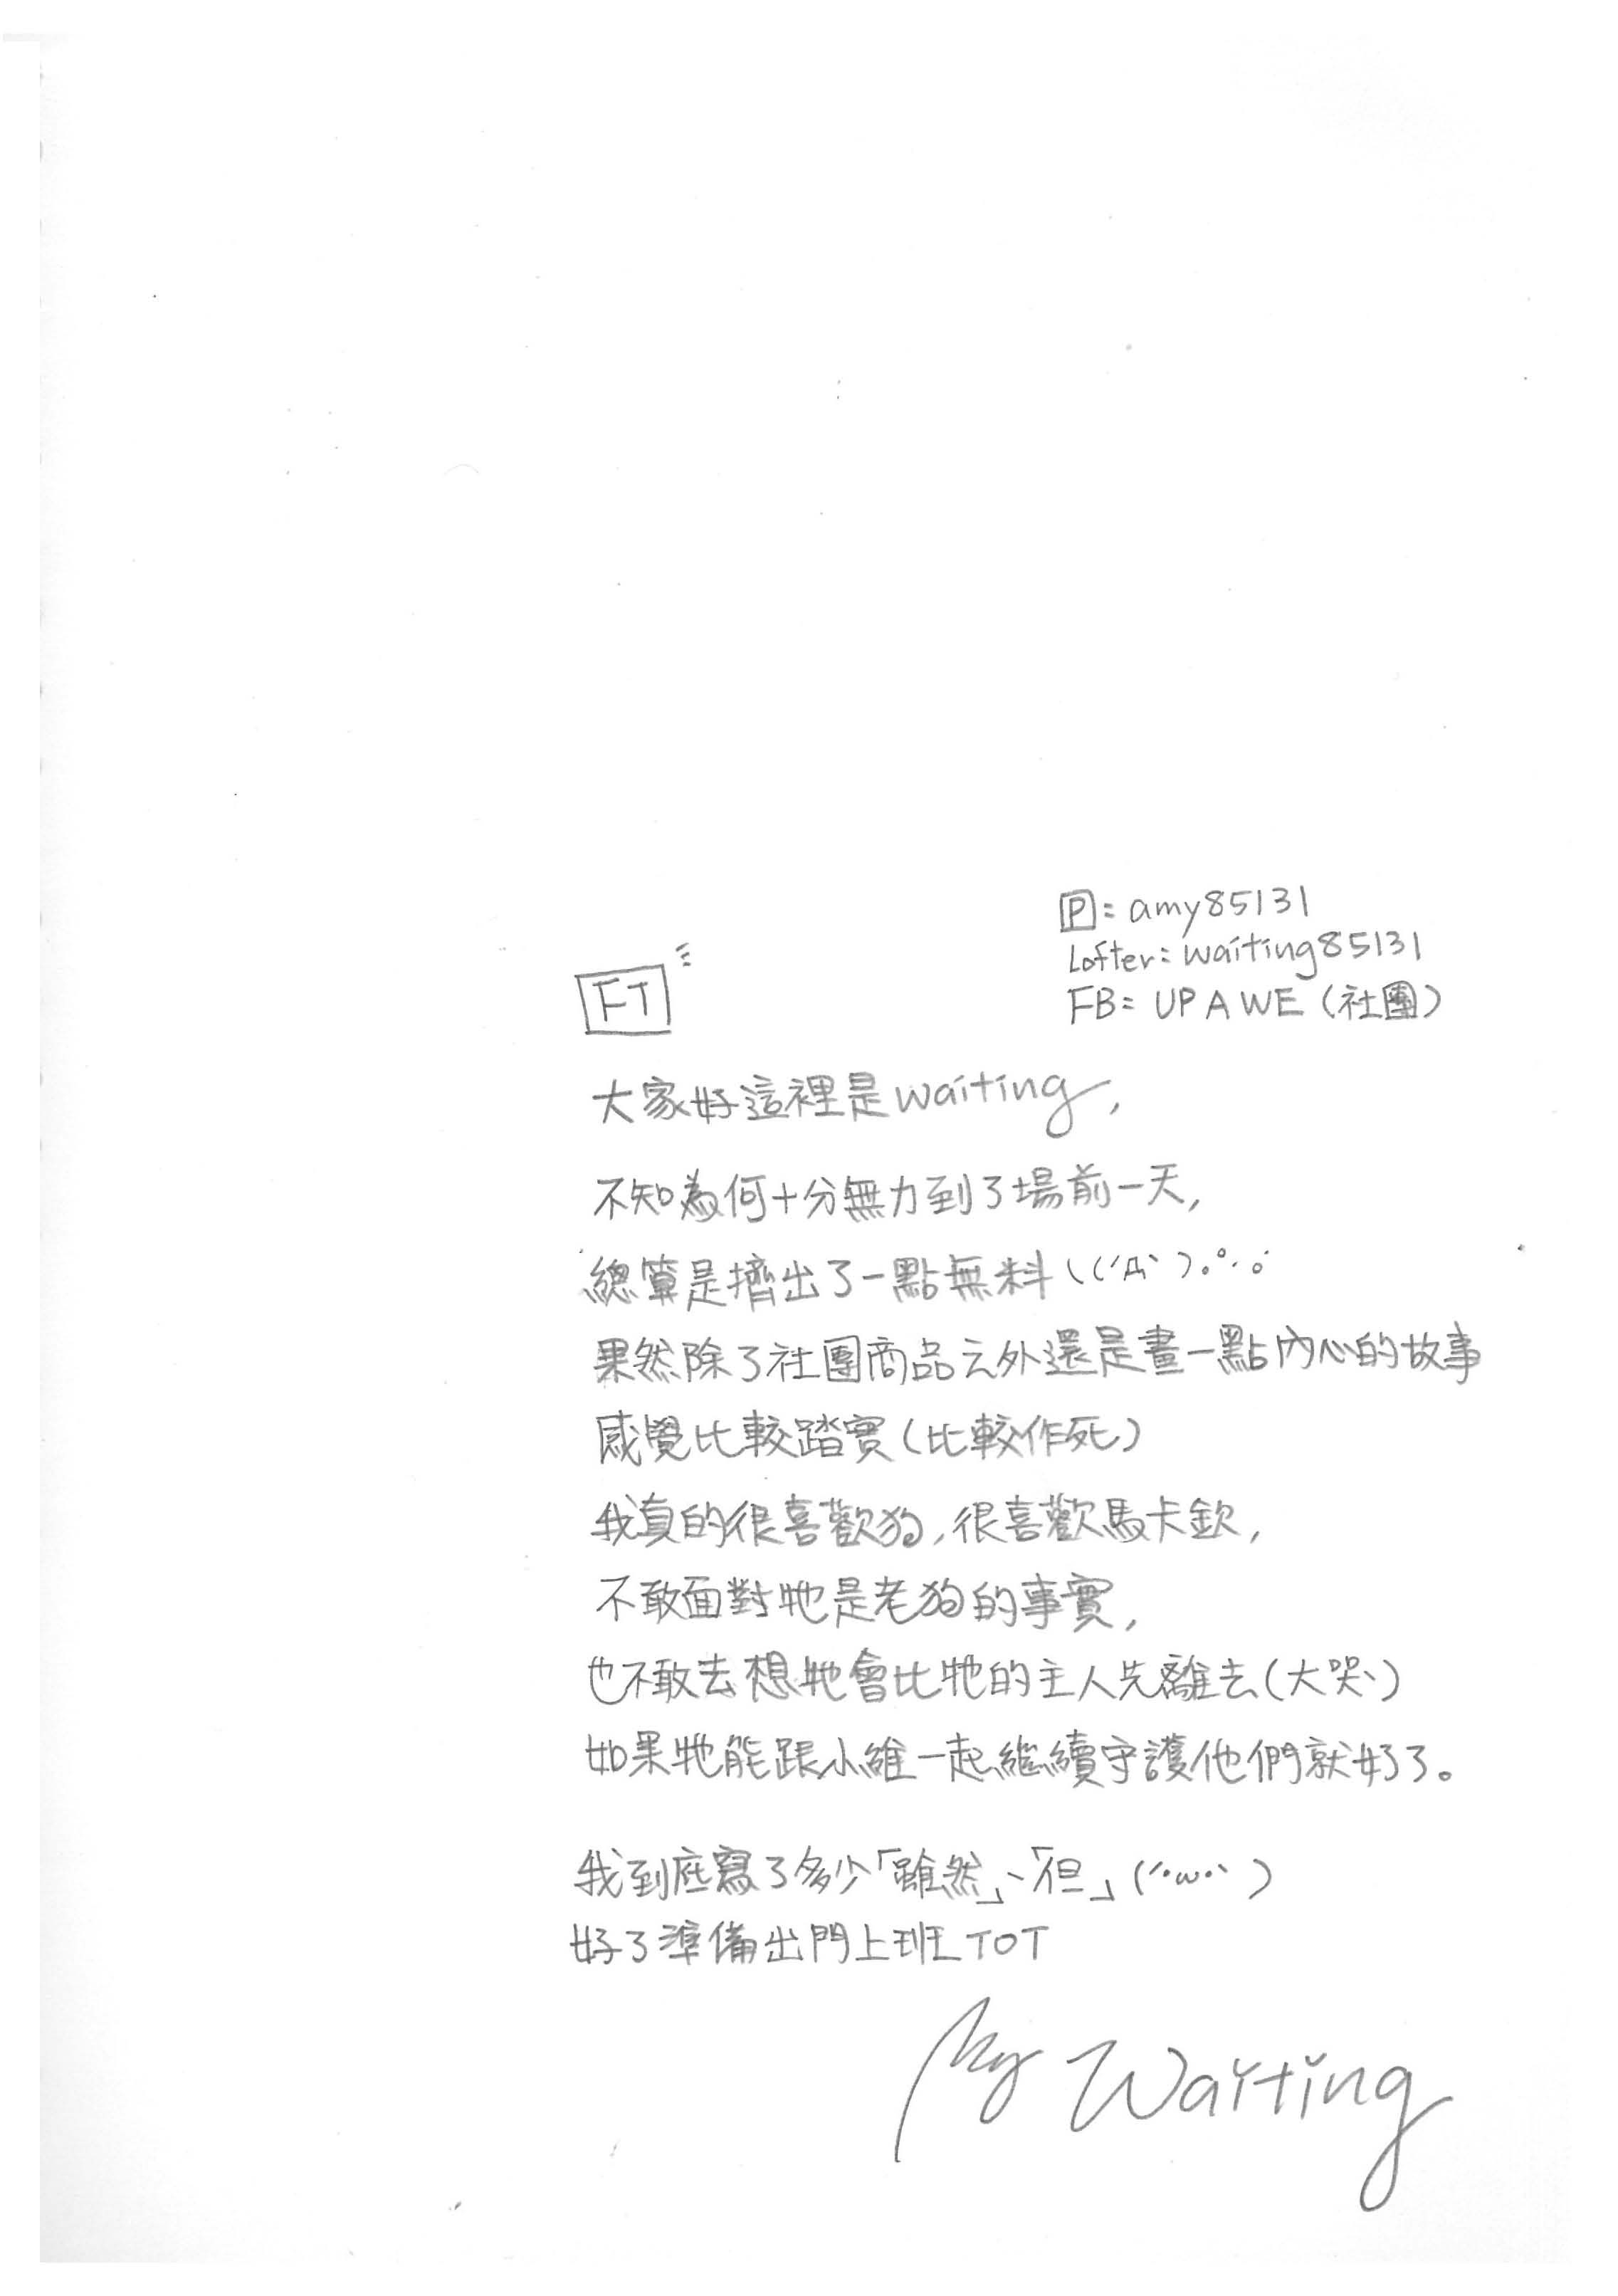 P: amy85131
Lofter: waiting85131
FB: UPAWE (社團)
FT
大家好這裡是waiting,
不知為何十分無力到了場前一天,
總算是擠出了一點無料\((´Д`)。°·。
果然除了社團商品之外還是畫一點內心的故事
感覺比較踏實(比較作死)
我真的很喜歡狗,很喜歡馬卡欽,
不敢面對牠是老狗的事實,
也不敢去想牠會比牠的主人先離去(大哭)
如果牠能跟小維一起繼續守護他們就好了。
我到底寫了多少「雖然」、「但」(´·ω·`)
好了準備出門上班TOT
By Waiting